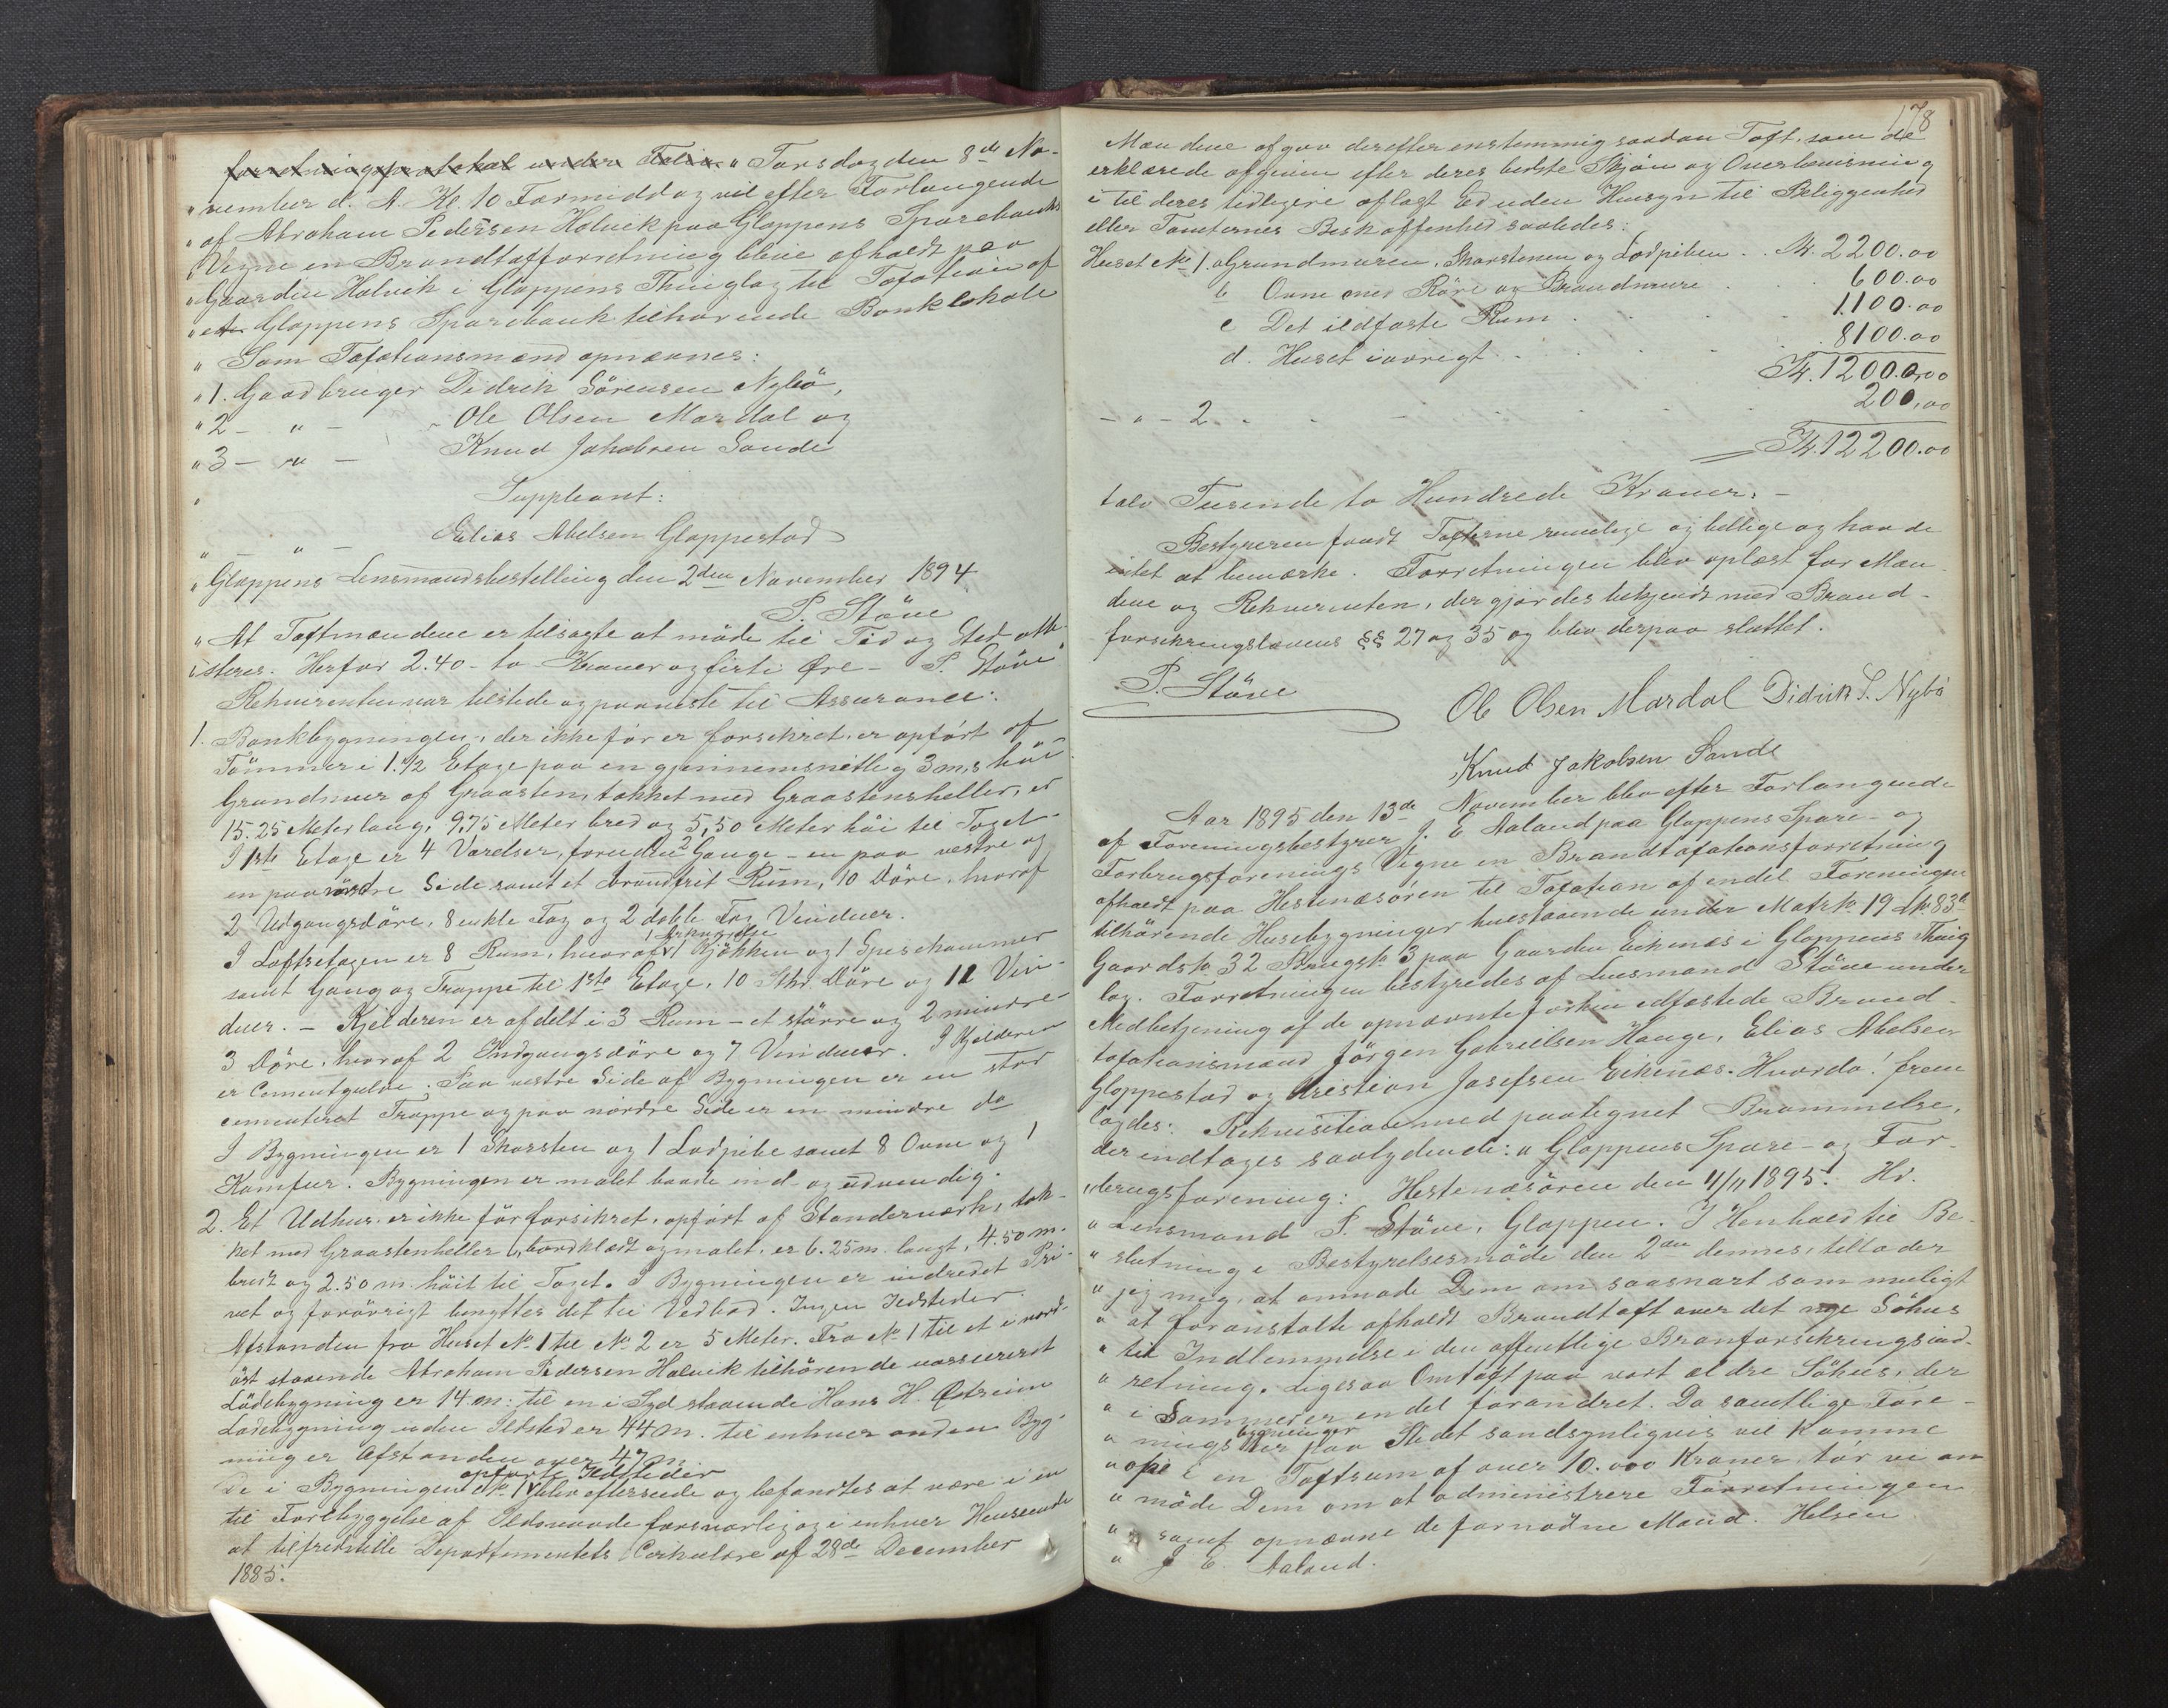 forretningsprotokol under Folio. " Torsdag den 8de No-
" vember d. A. Kl. 10 Formiddag vil efter Forlangende
" af Abraham Pedersen Holvik paa Gloppens Sparebanks
" Vegne en Brandtaxtforretning blive afholdt paa
" Gaarden Holvik i Gloppens Thinglag til Taxation af
" et Gloppens Sparebank tilhørende Banklokale
" Som Taxationsmænd opnævnes:
" 1. Gaardbruger Didrik Sörensen Nybö,
" 2 - " - Ole Olsen Mardal og
" 3 - " - Knud Jakobsen Sande
" Suppleant:
" - " - Elias Abelsen Gloppestad
" Gloppens Lensmandsbestilling den 2den November 1894
P. Stöve
" At Taxtmændene er tilsagte at möde til Tid og Sted atte-
steres. Herfor 2.40 - to Kroner og firti Øre - P. Stöve "
Rekvirenten var tilstede og paaviste til Assurance:
1. Bankbygningen, der ikke för er forsikret, er opfört af
Tömmer i 1.1/2 Etage paa en gjennemsnitlig 3 m,s höi
Grundmur af Graasten, takket med Graastensheller, er
15.25 Meter lang, 9,75 Meter bred og 5,50 Meter höi til Taget.
I 1ste Etage er 4 Værelser, foruden 2 Gange - en paa vestre og
en paa nordre Side samt et brandfrit Rum, 10 Döre, hvoraf
2 Udgangsdöre, 8 enkle Fag og 2 doble Fag Vinduer.
I Loftsetagen er 8 Rum, hvoraf 1 Kjökken og 1 Spisekammer
samt Gang og Trappe til 1ste Etage, 10 Stkr. Döre og 11 Vin-
duer. - Kjelderen er afdelt i 3 Rum - et större og 2 mindre -
3 Döre, hvoraf 2 Indgangsdöre og 7 Vinduer. I Kjelderen
er Cementgulve. Paa vestre Side af Bygningen er en stor
cementeret Trappe og paa nordre Side er en mindre do
I Bygningen er 1 Skorsten og 1 Lodpibe samt 8 Ovne og 1
Komfur. Bygningen er malet baade ind- og udvendig.
2. Et Udhus, er ikke för forsikret, opfört af Standerværk, tak-
ket med Graastenheller, bordklædt og malet, er 6.25 m. langt, 4.50 m.
bredt og 2.50 m. höit til Taget. I Bygningen er indredet Pri-
vet og forövrigt benyttes det til Vedbod. Ingen Ildsteder.
Afstanden fra Huset No 1 til No 2 er 5 Meter. Fra No 1 til et i nord-
öst staaende Abraham Pedersen Holvik tilhörende uassureret
Lödebygning er 14 m: til en i Syd staaende Hans H.
Ladebygning uden Ildsted er 44 m. til enhver anden Byg-
ning er Afstanden over 47 m.
opförte Ildsteder
De i Bygningen No 1 blev efterseede og befandtes at være i en
til Forebyggelse af Ildsvaade forsvarlig og i enhver Henseende
at tilfredstille Departementets Cirkulære af 28de December
1885.
178
Mændene afgav derefter enstemmig saadan Taxt, som de
erklærede afgiven efter deres bedste Skjön og Overbevisning
i til deres tidligere aflagt Ed uden Hensyn til Beliggenhed
eller Tomternes Beskaffenhed saaledes:
Huset No 1. a Grundmuren, Skorstenen og Lodpiben . . Kr. 2200.00
b Ovne med Röre og Brandmure . . 600.00
c Det ildfaste Rum . . . 1100.00
d. Huset iövrigt . . . 8100.00
Kr. 12000.00
- " - 2 . . . . 200,00
Kr. 12200.00
tolv Tusende to Hundrede Kroner. -
Bestyreren fandt Taxterne rimelige og billige og havde
intet at bemærke. Forretningen blev oplæst for Mæn-
dene og Rekvirenten, der gjordes bekjendt med Brand-
forsikringslovens §§ 27 og 35 og blev derpaa sluttet.
P. Stöve
Ole Olsen Mardal Didrik S. Nybö
Knud Jakobsen Sande
Aar 1895 den 13de November blev efter Forlangende
af Foreningsbestyrer J. E. Aaland paa Gloppens Spare- og
Forbrugsforenings Vegne en Brandtaxationsforretning
afholdt paa Hestenæsören til Taxation af endel Foreningen
tilhörende Husebygninger henstaaende under Matr№ 19 L№ 83a
Gaards№ 32 Brugs№ 3 paa Gaarden Eikenæs i Gloppens Thing-
lag. Forretningen bestyredes af Lensmand Stöve under
Medbetjening af de opnævnte forhen edfæstede Brand-
taxationsmænd Jörgen Gabrielsen Hauge, Elias Abelsen
Gloppestad og Kristian Josefsen Eikenæs. Hvorda! frem-
lagdes: Rekvisition med paategnet Brammelse,
der indtages saalydende: " Gloppens Spare- og For-
" brugsforening: Hestenæsören den 4/11 1895. Hr.
" Lensmand P. Stöve, Gloppen. I Henhold til Be-
" slutning i Bestyrelsesmöde den 2den dennes, tillader
" jeg mig, at anmode Dem om saasnart som muligt
" at foranstalte afholdt Brandtaxt over det nye Söhus
" til Indlemmelse i den offentlige Branforsikringsind-
" retning. Ligesaa Omtaxt paa vort ældre Söhus, der
" i Sommer er en del forandret. Da samtlige Fore-
bygninger
" nings paa Stedet sandsynligvis vil komme
" op i en Taxtsum af over 10.000 Kroner, tör vi an-
" möde Dem om at administrere Forretningen
" samt opnævne de fornödne Mænd. Hilsen
" J. E. Aaland.